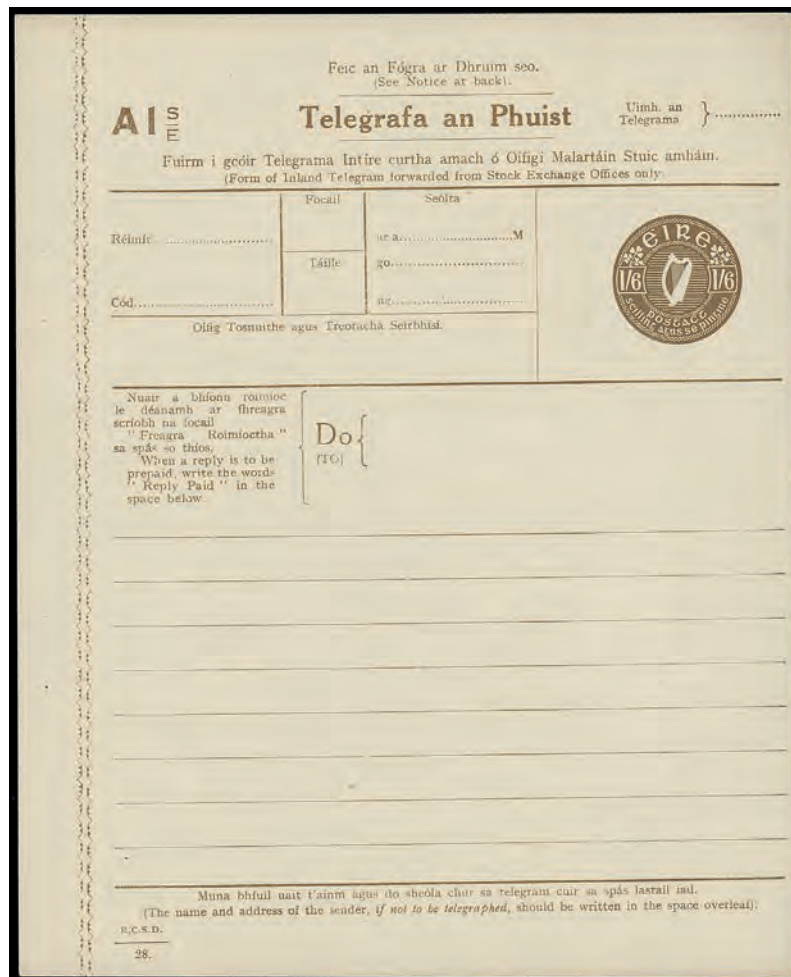 Feic an Fógra ar Dhruim seo.
(See Notice at back).
A1 S/E
Telegrafa an Phuist
Uimh. an
Telegrama } ................
Fuirm i gcóir Telegrama Intíre curtha amach ó Oifigí Malartáin Stuic amháin.
(Form of Inland Telegram forwarded from Stock Exchange Offices only
Focail
Seólta
Réimír ............................
ar a............................M
Táille
go................................
Cód................................
ag................................
Oifig Tosnuithe agus Treoracha Seirbhísí.
EIRE
1/6 1/6
postact
scilling agus sé pingine
Nuair a bhíonn roimíoc
le déanamh ar fhreagra
scríobh na focail
" Freagra Roimíoctha "
sa spás so thíos.
When a reply is to be
prepaid, write the words
" Reply Paid " in the
space below.
Do {
(TO)
Muna bhfuil uait t'ainm agus do sheóla chur sa telegram cuir sa spás lastaíl iad.
(The name and address of the sender, if not to be telegraphed, should be written in the space overleaf).
R.C.S.D.
28.